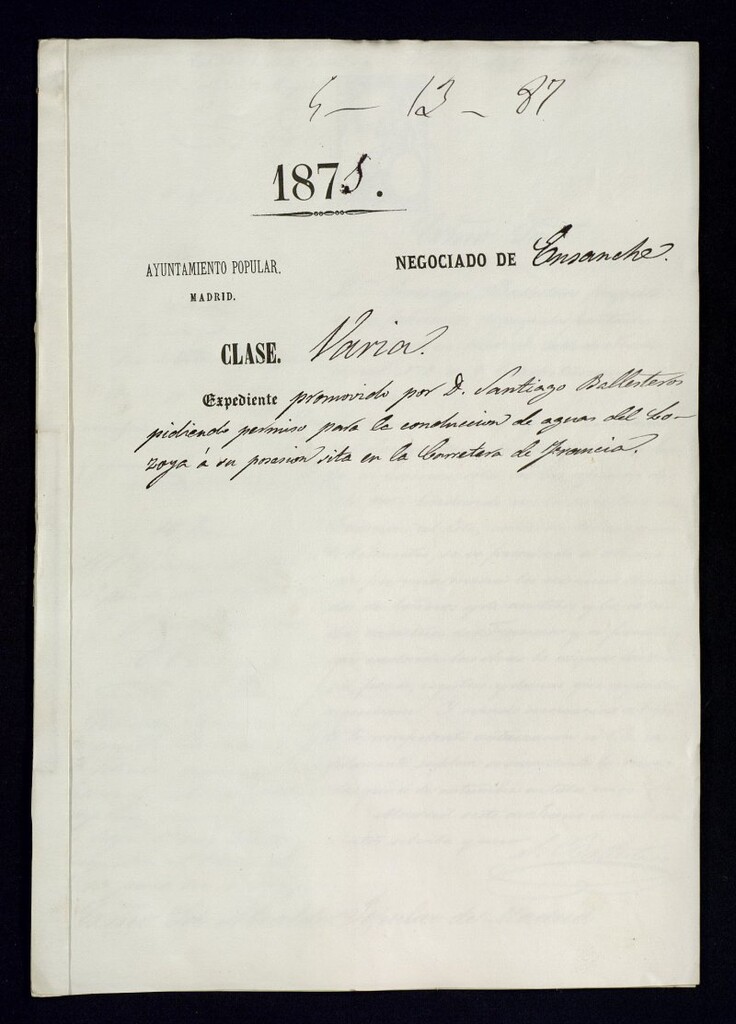 5 - 13 - 87
1875.
AYUNTAMIENTO POPULAR.
MADRID.
NEGOCIADO DE Ensanche.
CLASE. Varia.
Expediente promovido por D. Santiago Ballesteros
pidiendo permiso para la conduccion de aguas del Lo-
zoya á su posesion sita en la Carretera de Francia.